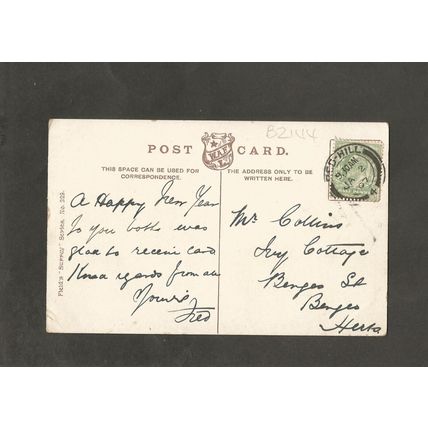 B2144
POST CARD.
W.A.F.
THIS SPACE CAN BE USED FOR
CORRESPONDENCE.
THE ADDRESS ONLY TO BE
WRITTEN HERE.
Field's "Surrey" Series. No. 225.
A Happy New Year
to you both was
glad to receive card
Kind regards from all
Yours
Fred
Mr Collins
Ivy Cottage
Bengeo St
Bengeo
Herts
RED-HILL
JA 2